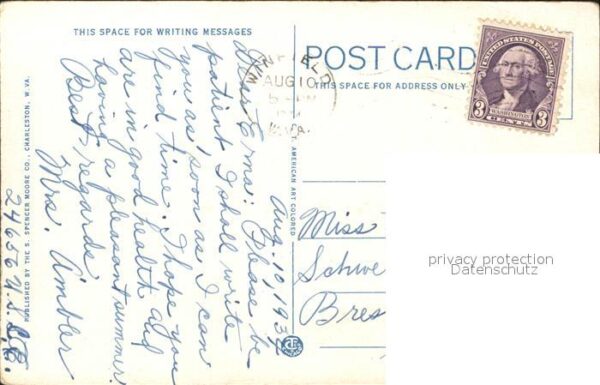 THIS SPACE FOR WRITING MESSAGES
Dear Erna: Please be
patient I shall write
you as soon as I can
find time. I hope you
are in good health and
having a pleasant summer.
Best regards
Mrs. Ambler
PUBLISHED BY THE S. SPENCER MOORE CO., CHARLESTON, W. VA.
AMERICAN ART COLORED
POST CARD
THIS SPACE FOR ADDRESS ONLY
WINFIELD
AUG 10
W. VA.
UNITED STATES POSTAGE
WASHINGTON
3 CENTS 3
Aug. 10, 1934
Miss
Schwe
Bres
privacy protection
Datenschutz